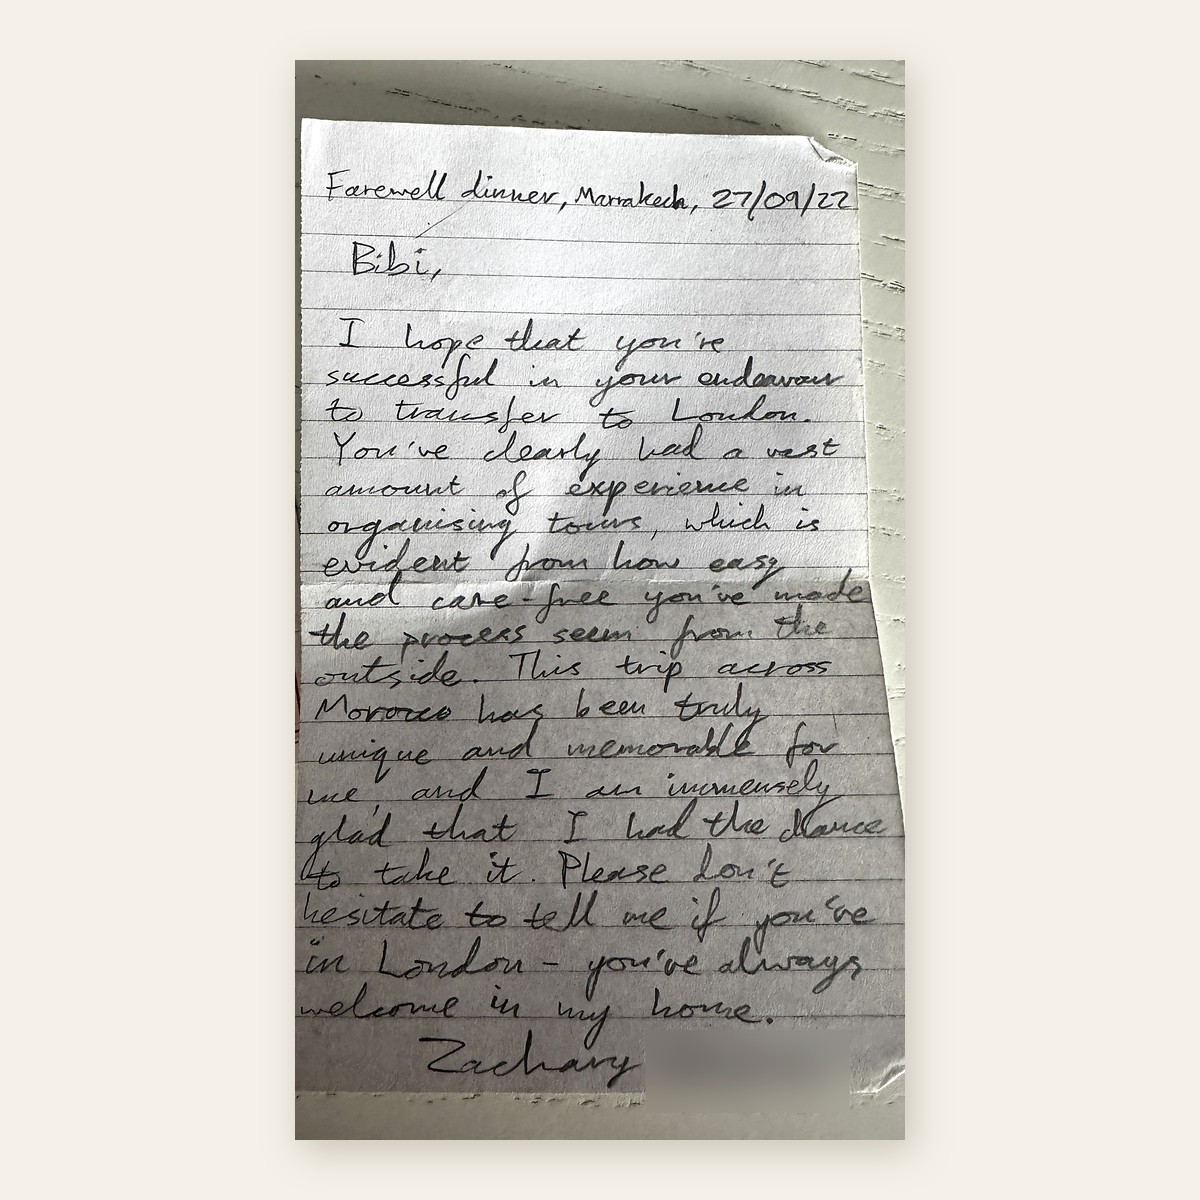 Farewell dinner, Marrakech, 27/09/22
Bibi,
I hope that you're
successful in your endeavour
to transfer to London.
You've clearly had a vast
amount of experience in
organising tours, which is
evident from how easy
and care-free you've made
the process seem from the
outside. This trip across
Morocco has been truly
unique and memorable for
me, and I am immensely
glad that I had the chance
to take it. Please don't
hesitate to tell me if you've
in London - you've always
welcome in my home.
Zachary